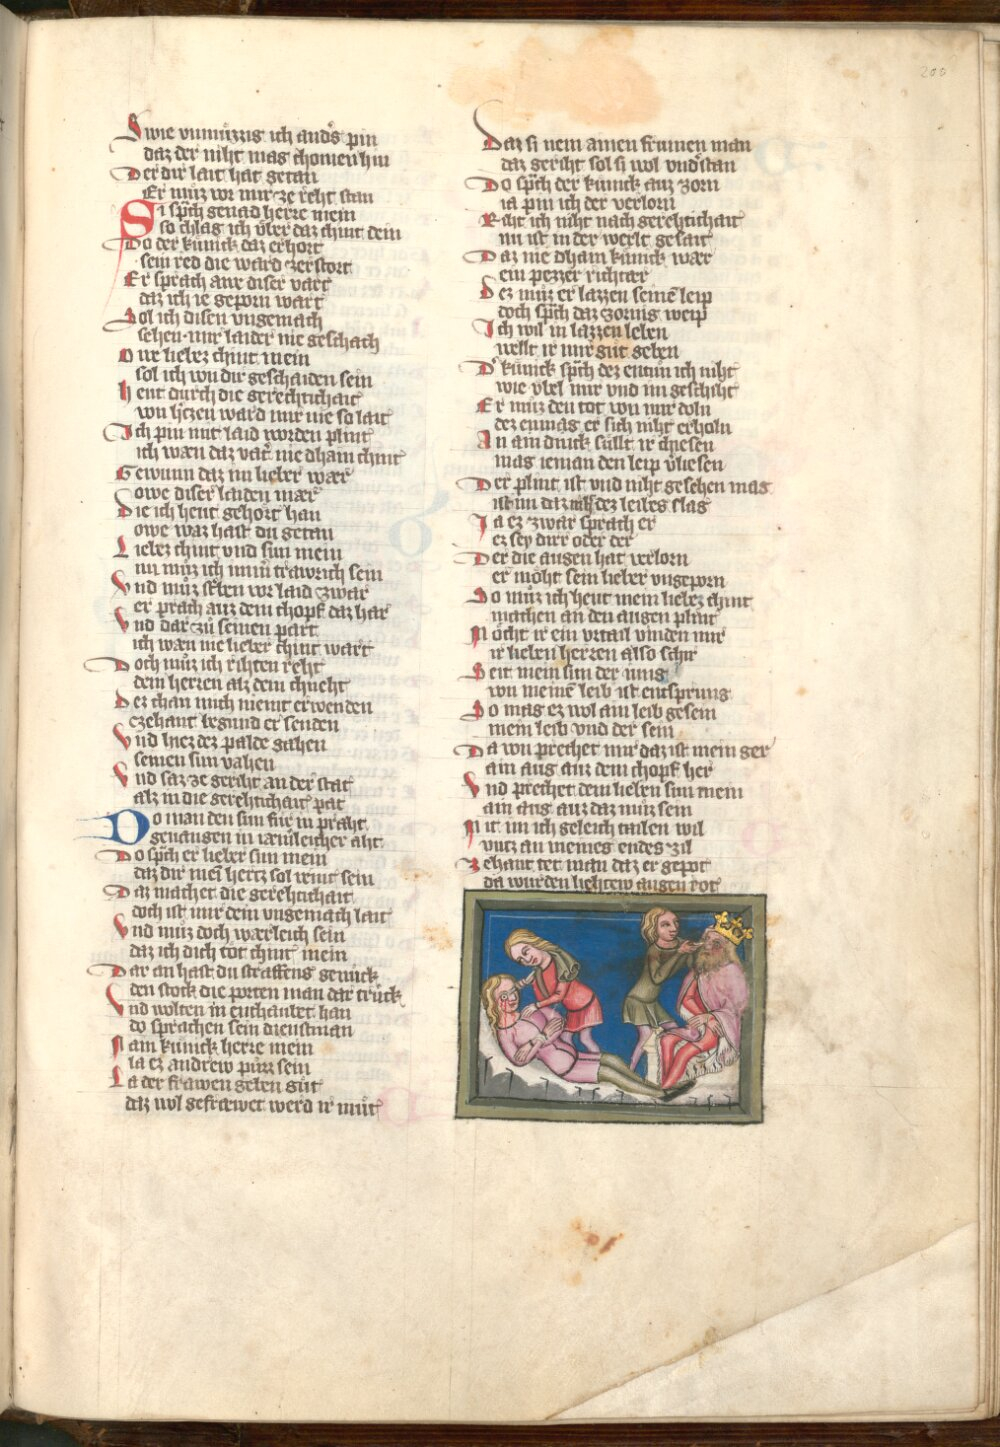 200
Swie vnmüzzig ich anders pin
daz der niht mag chomen hin
Der dir lait hat getan
Er müz vor mir ze reht stan
Si sprach genad herre mein
so chlag ich vber daz chint dein
Do der künick daz erhort
sein red die ward zerstort
Er sprach awe diser vart
daz ich ie geporn wart
Sol ich disen vngemach
sehen mir laider nie geschach
Owe liebez chint mein
sol ich von dir geschaiden sein
Hent durch die gerehtichait
von hertzen ward mir nie so lait
Ich pin mit laid worden plint
ich wæn daz vater nie dhain chint
Gewunn daz im lieber wær
Owe diser laiden mær
Die ich hent gehort han
owe waz hast du getan
Liebez chint vnd sun mein
nu müz ich immer trawrich sein
Vnd müz sterben vor laid zwar
er prach auz dem chopf daz har
Vnd dar zü seinen part
ich wæn nie lieber chint wart
Doch müz ich rihten reht
dem herren alz dem chneht
Dez chan mich niemt erwenden
zehant begund er senden
Vnd hiez dez palde gahen
seinen sun vahen
Vnd saz ze geriht an der stat
alz in die gerehtichait pat
Do man den sun für in praht
geuangen in iæmleicher aht
Do sprach er lieber sun mein
daz dir mein hertz sol veint sein
Daz machet die gerehtichait
doch ist mir dein vngemach lait
Vnd müz doch wærleich sein
daz ich dich töt chint mein
Dar an hast du straffens genück
den stock die porten man dar trück
Vnd wolten in enthaubet han
do sprachen sein dienstman
Nain künick herre mein
la ez andrew püzz sein
La der frawen geben güt
daz wol gefræwet werd ir müt
Daz si nem ainen frumen man
daz geriht sol si wol vnderstan
Do sprach der künick auz zorn
ia pin ich der verlorn
Riht ich niht nach gerehtichait
nu ist in der werlt gesait
Daz nie dhain künick wær
ein pezzer richtær
Dez müz er lazzen seinen leip
doch sprach daz zornig weip
Ich wil in lazzen leben
wellt ir mir güt geben
Der künick sprach dez entün ich niht
wie vbel mir vnd im geschiht
Er müz den tot von mir doln
dez enmag er sich niht erholn
An ain dinck süllt ir chiesen
mag ieman den leip verliesen
Der plint ist vnd niht gesehen mag
ist im daz niht dez leibes slag
Ja ez zwar sprach er
ez sey dirr oder der
Der die augen hat verlorn
er möht sein lieber vngeporn
So müz ich hent mein liebez chint
machen an den augen plint
Möcht ir ein vrtail vinden mir
ir lieben herren also schir
Seit mein sun der iung
von meinem leib ist entsprung
So mag ez wol ain leib gesein
mein leib vnd der sein
Da von prechet mir daz ist mein ger
ain aug auz dem chopf her
Vnd prechet dem lieben sun mein
ain aug auz daz müz sein
Mit im ich geleich tailen wil
vntz an meines endes zil
Zehant tet man daz er gepot
da wurden liehtew augen rot